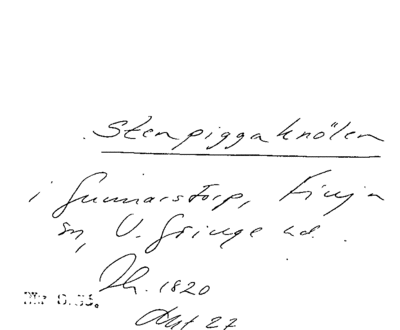 Stenpiggaknölen
i Gunnarstorp, Finja
sn, V. Göinge hd.
Lh. 1820
Akt 27